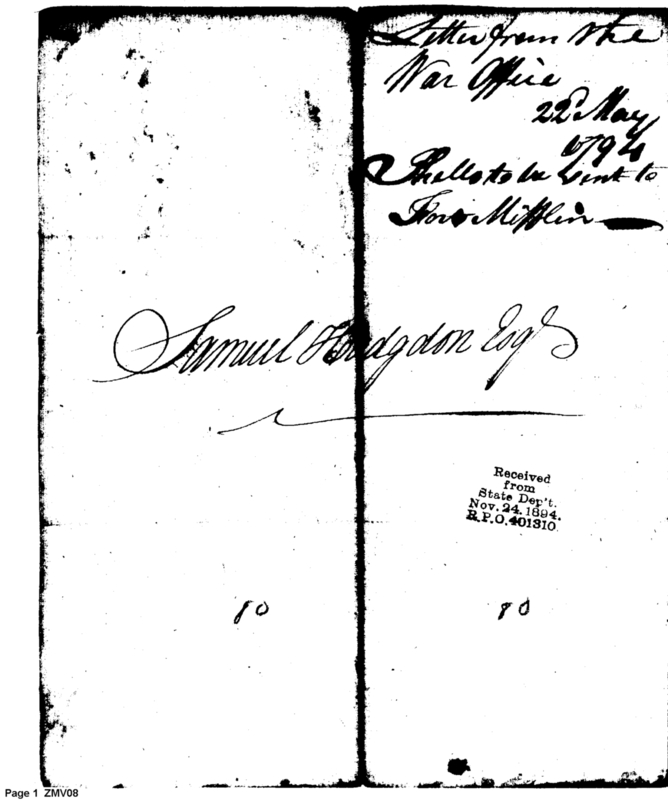 Letter from the
War Office
22d May
1794
Shells to be sent to
Fort Mifflin
Samuel Hodgdon Esqr
Received
from
State Dep't.
Nov. 24. 1894.
R.P.O. 401310.
80
80
Page 1 ZMV08